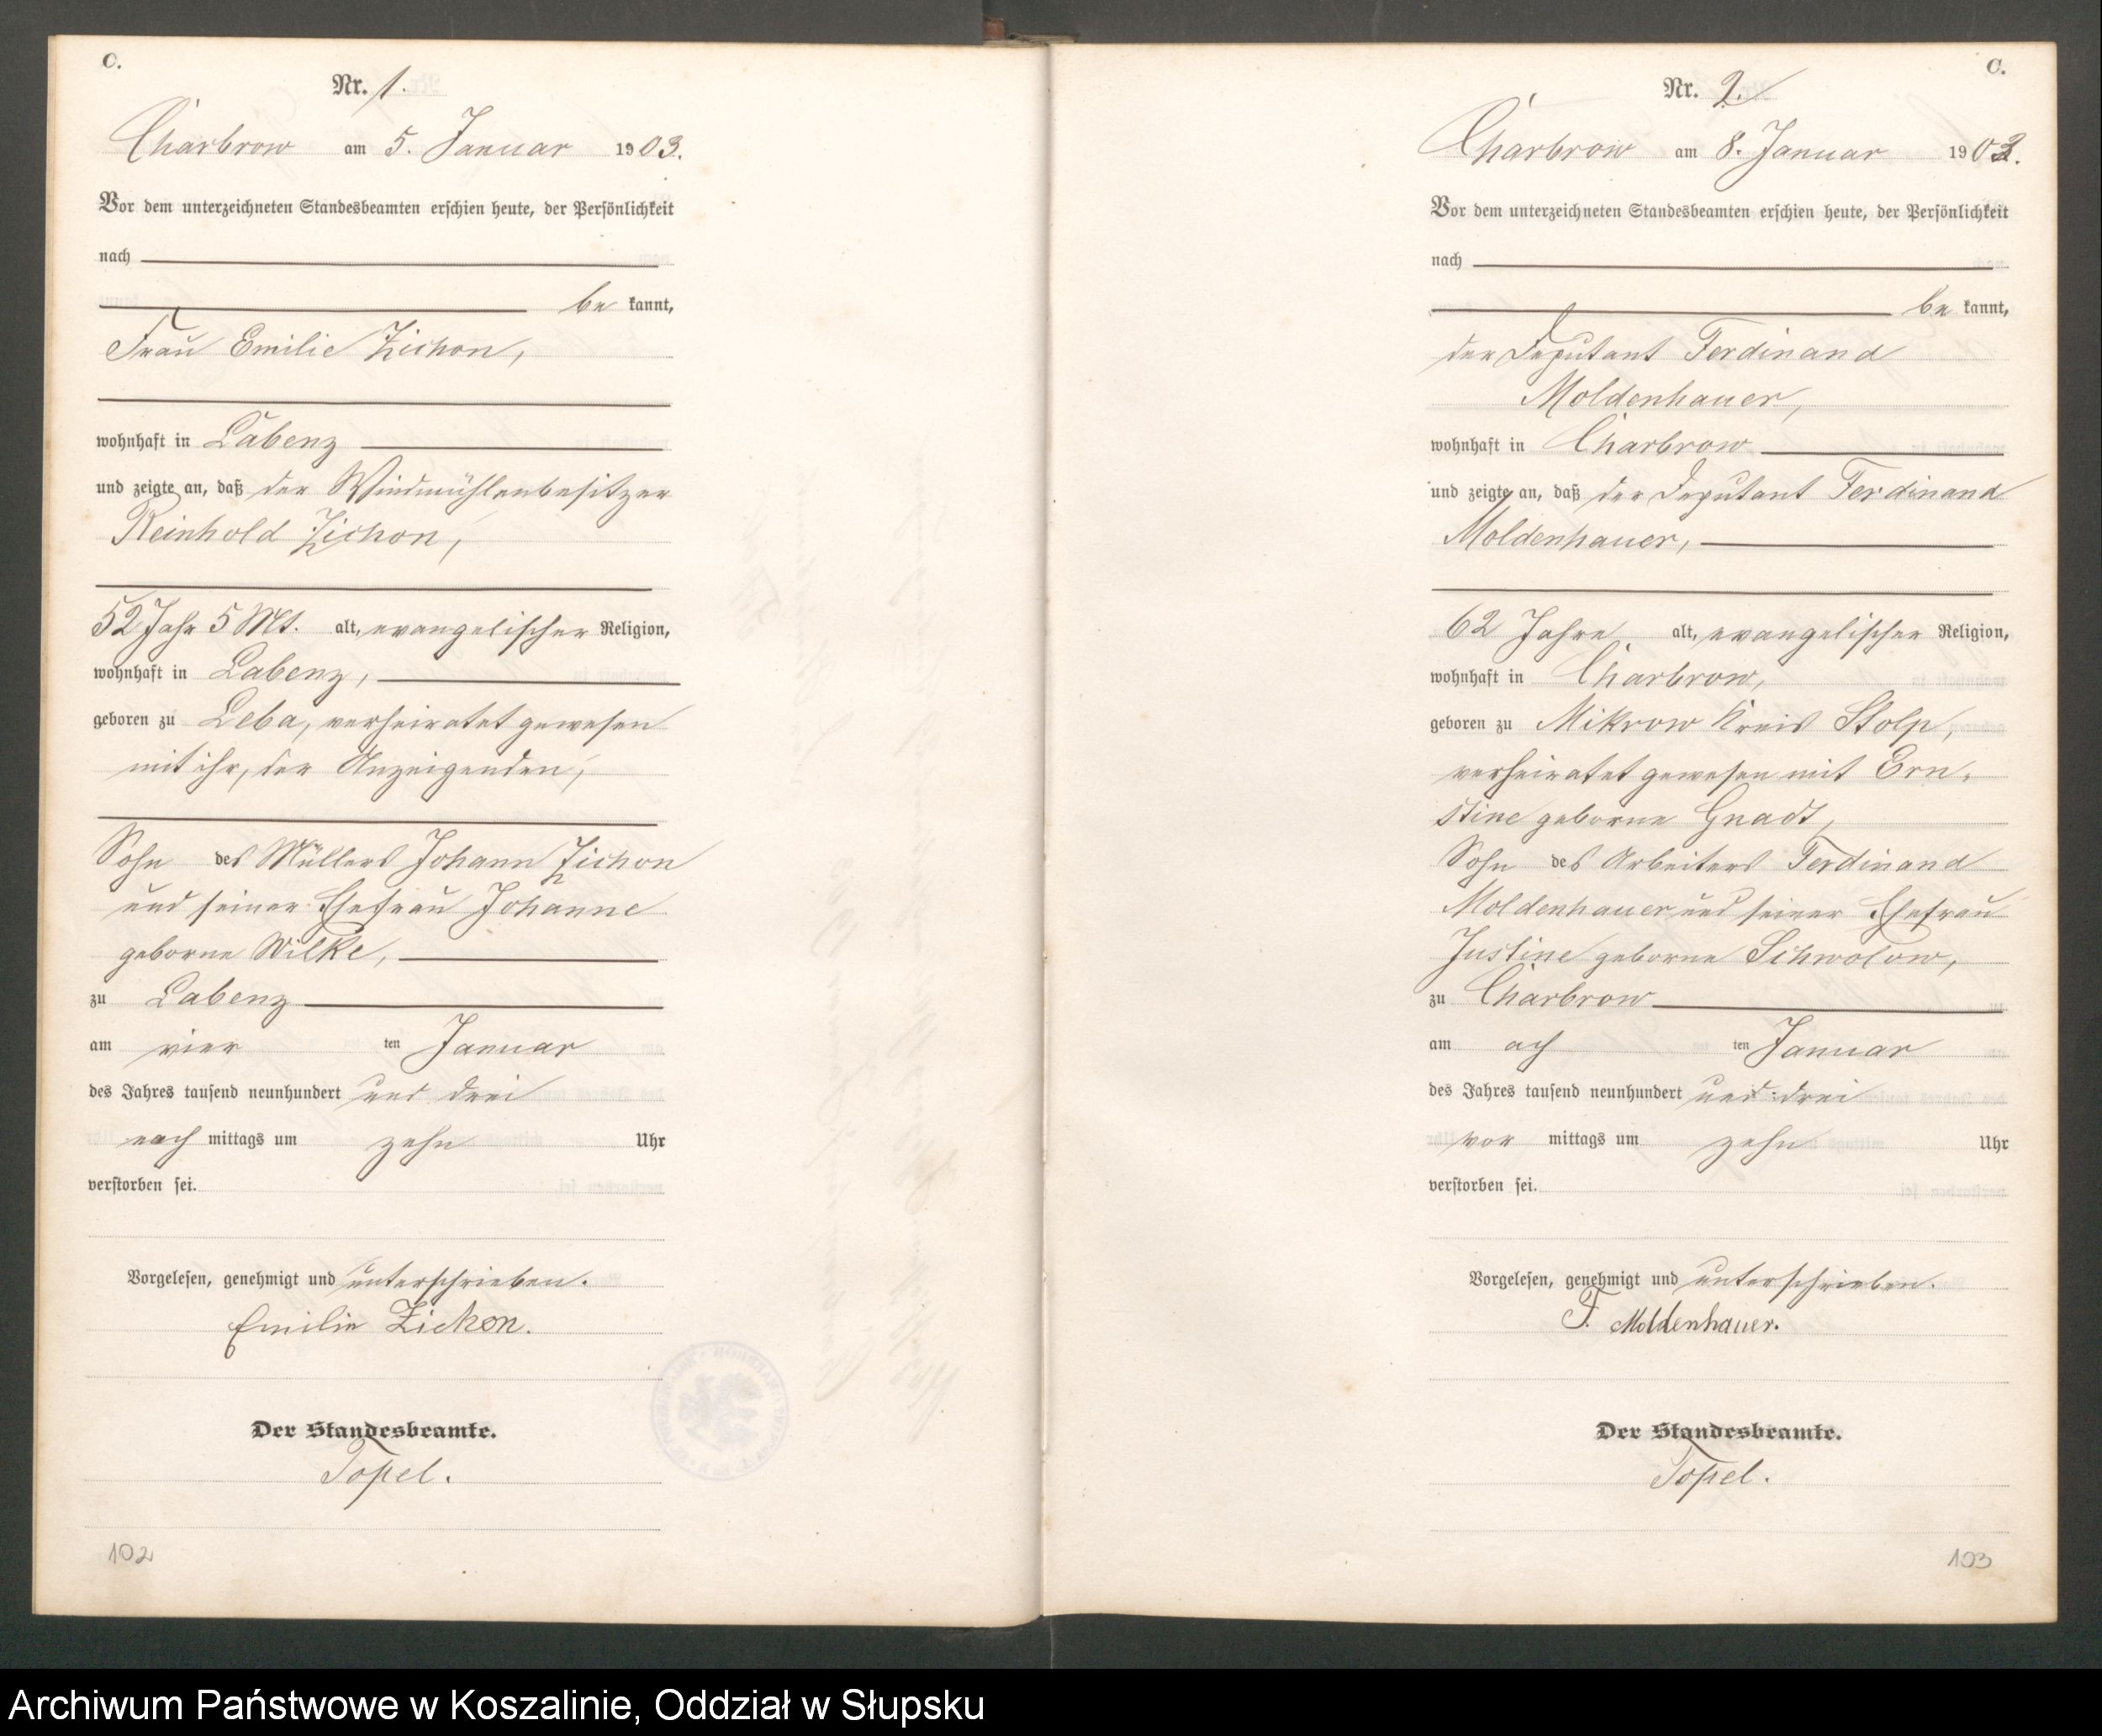 C.
Nr. 1.
Charbrow am 5. Januar 1903.
Vor dem unterzeichneten Standesbeamten erschien heute, der Persönlichkeit
nach
be kannt,
Frau Emilie Zichon,
wohnhaft in Labenz
und zeigte an, daß der Windmühlenbesitzer
Reinhold Zichon,
52 Jahr 5 Mt. alt, evangelischer Religion,
wohnhaft in Labenz,
geboren zu Leba, verheiratet gewesen
mit ihr, der Anzeigenden,
Sohn des Müllers Johann Zichon
und seiner Ehefrau Johanne
geborne Wilke,
zu Labenz
am vier ten Januar
des Jahres tausend neunhundert und drei
nach mittags um zehn Uhr
verstorben sei.
Vorgelesen, genehmigt und unterschrieben.
Emilie Zichon.
Der Standesbeamte.
Topel.
102
C.
Nr. 2.
Charbrow am 8. Januar 1903.
Vor dem unterzeichneten Standesbeamten erschien heute, der Persönlichkeit
nach
be kannt,
der Deputant Ferdinand
Moldenhauer,
wohnhaft in Charbrow
und zeigte an, daß der Deputant Ferdinand
Moldenhauer,
62 Jahre alt, evangelischer Religion,
wohnhaft in Charbrow,
geboren zu Mikrow Kreis Stolp,
verheiratet gewesen mit Ern-
stine geborne Gnadt,
Sohn des Arbeiters Ferdinand
Moldenhauer und seiner Ehefrau
Justine geborne Schwolow,
zu Charbrow
am ach ten Januar
des Jahres tausend neunhundert und drei
vor mittags um zehn Uhr
verstorben sei.
Vorgelesen, genehmigt und unterschrieben.
F. Moldenhauer.
Der Standesbeamte.
Topel.
103
Archiwum Państwowe w Koszalinie, Oddział w Słupsku